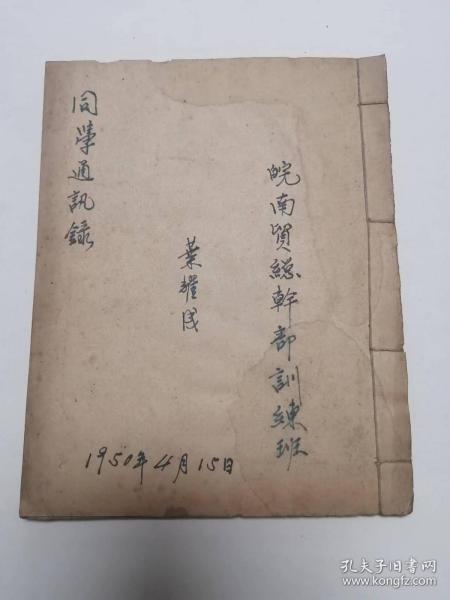 皖南貿總幹部訓練班
葉耀成
同學通訊録
1950年4月15日
孔夫子旧书网
www.kongfz.com